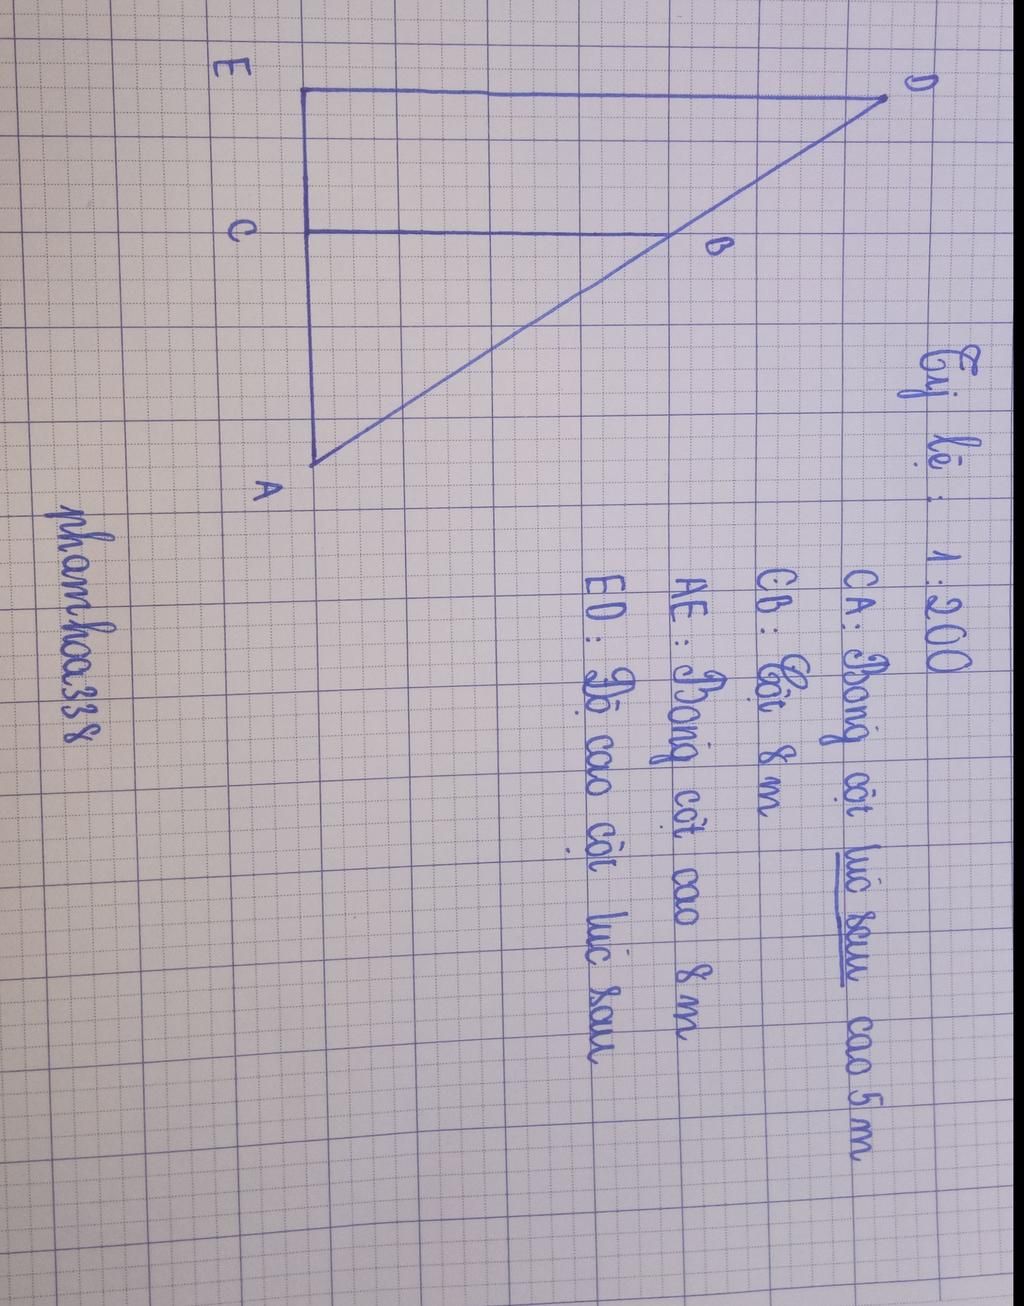 E
D
C
B
A
Tỷ lệ : 1:200
CA: Bóng cột lúc sau cao 5m
CB: Cột 8m
AE: Bóng cột cao 8m
ED: Độ cao cột lúc sau
phamhoa338